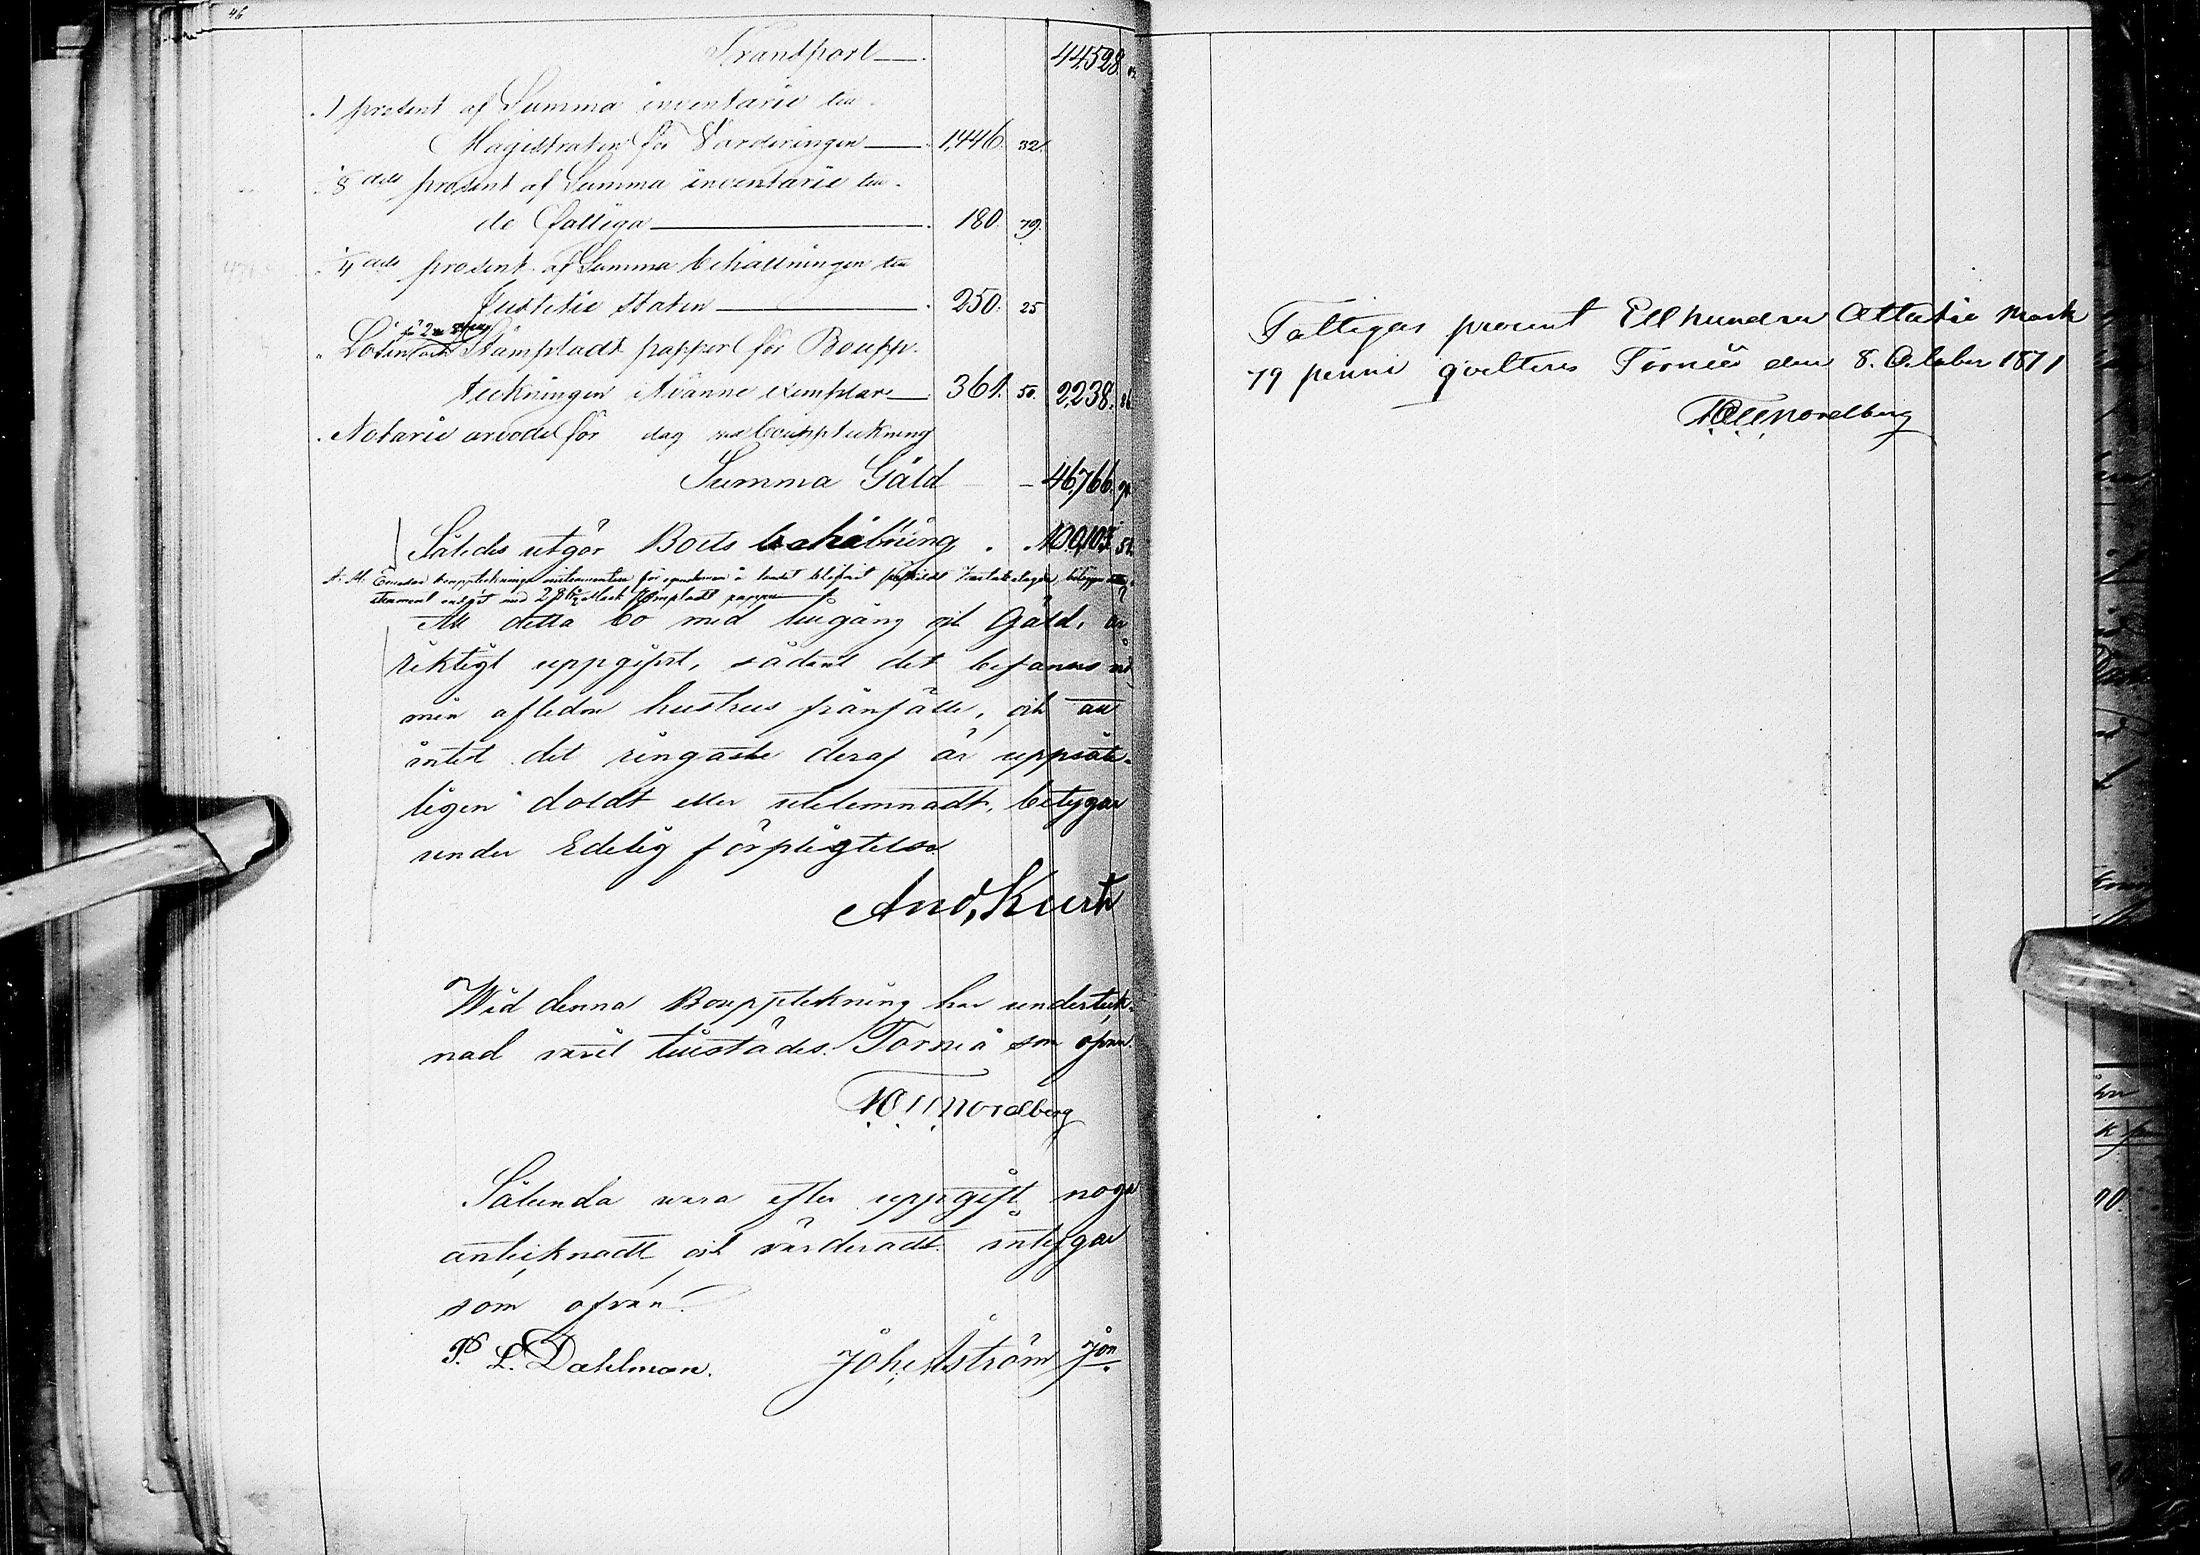 46
Transport 44528.
1 prosent af Summa inventarie till
Magistraten för Värderingen 1,446. 32.
8 dels prosent af Summa inventarie till
de fattiga 180. 79.
4 dels prosent af Summa behållningen till
Justitie staten 250. 25
Lösen för Stämpladt papper för Boupp-
teckningen i tvänne exemplar 361. 50. 2,238. 86
Notarie arvodet för dag vid bouppteckning
Summa Gäld 46,766.
Således utgör Boets behållning 100,103 51.
stämpladt papper
Att detta bo med tillgång och Gäld, är
riktigt uppgifvit, sådant det befanns vid
min aflidna hustrus frånfälle, och att
intet det ringaste deraf är uppsåt-
ligen doldt eller utelemnadt, betygar
under Edelig förpligtelse.
And, Kurth
Wid denna Bouppteckning har underteck-
nad varit tillstädes. Torneå som ofvan.
Nordberg
Sålunda vara efter uppgift noga
antecknadt och värderadt intygar
som ofvan.
P. L. Dahlman. Joh. Åström Jon
Fattigas procent Ett hundra Åttatio Mark
79 penni qvitteras Torneå den 8. October 1871
Nordberg